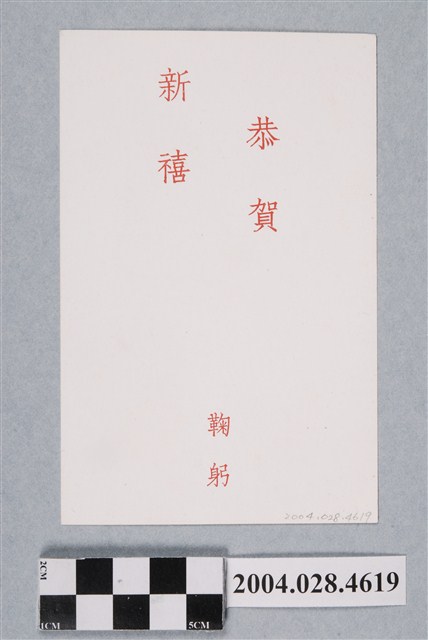 恭賀
新禧
鞠躬
2004.028.4619
2CM
1CM
5CM
2004.028.4619